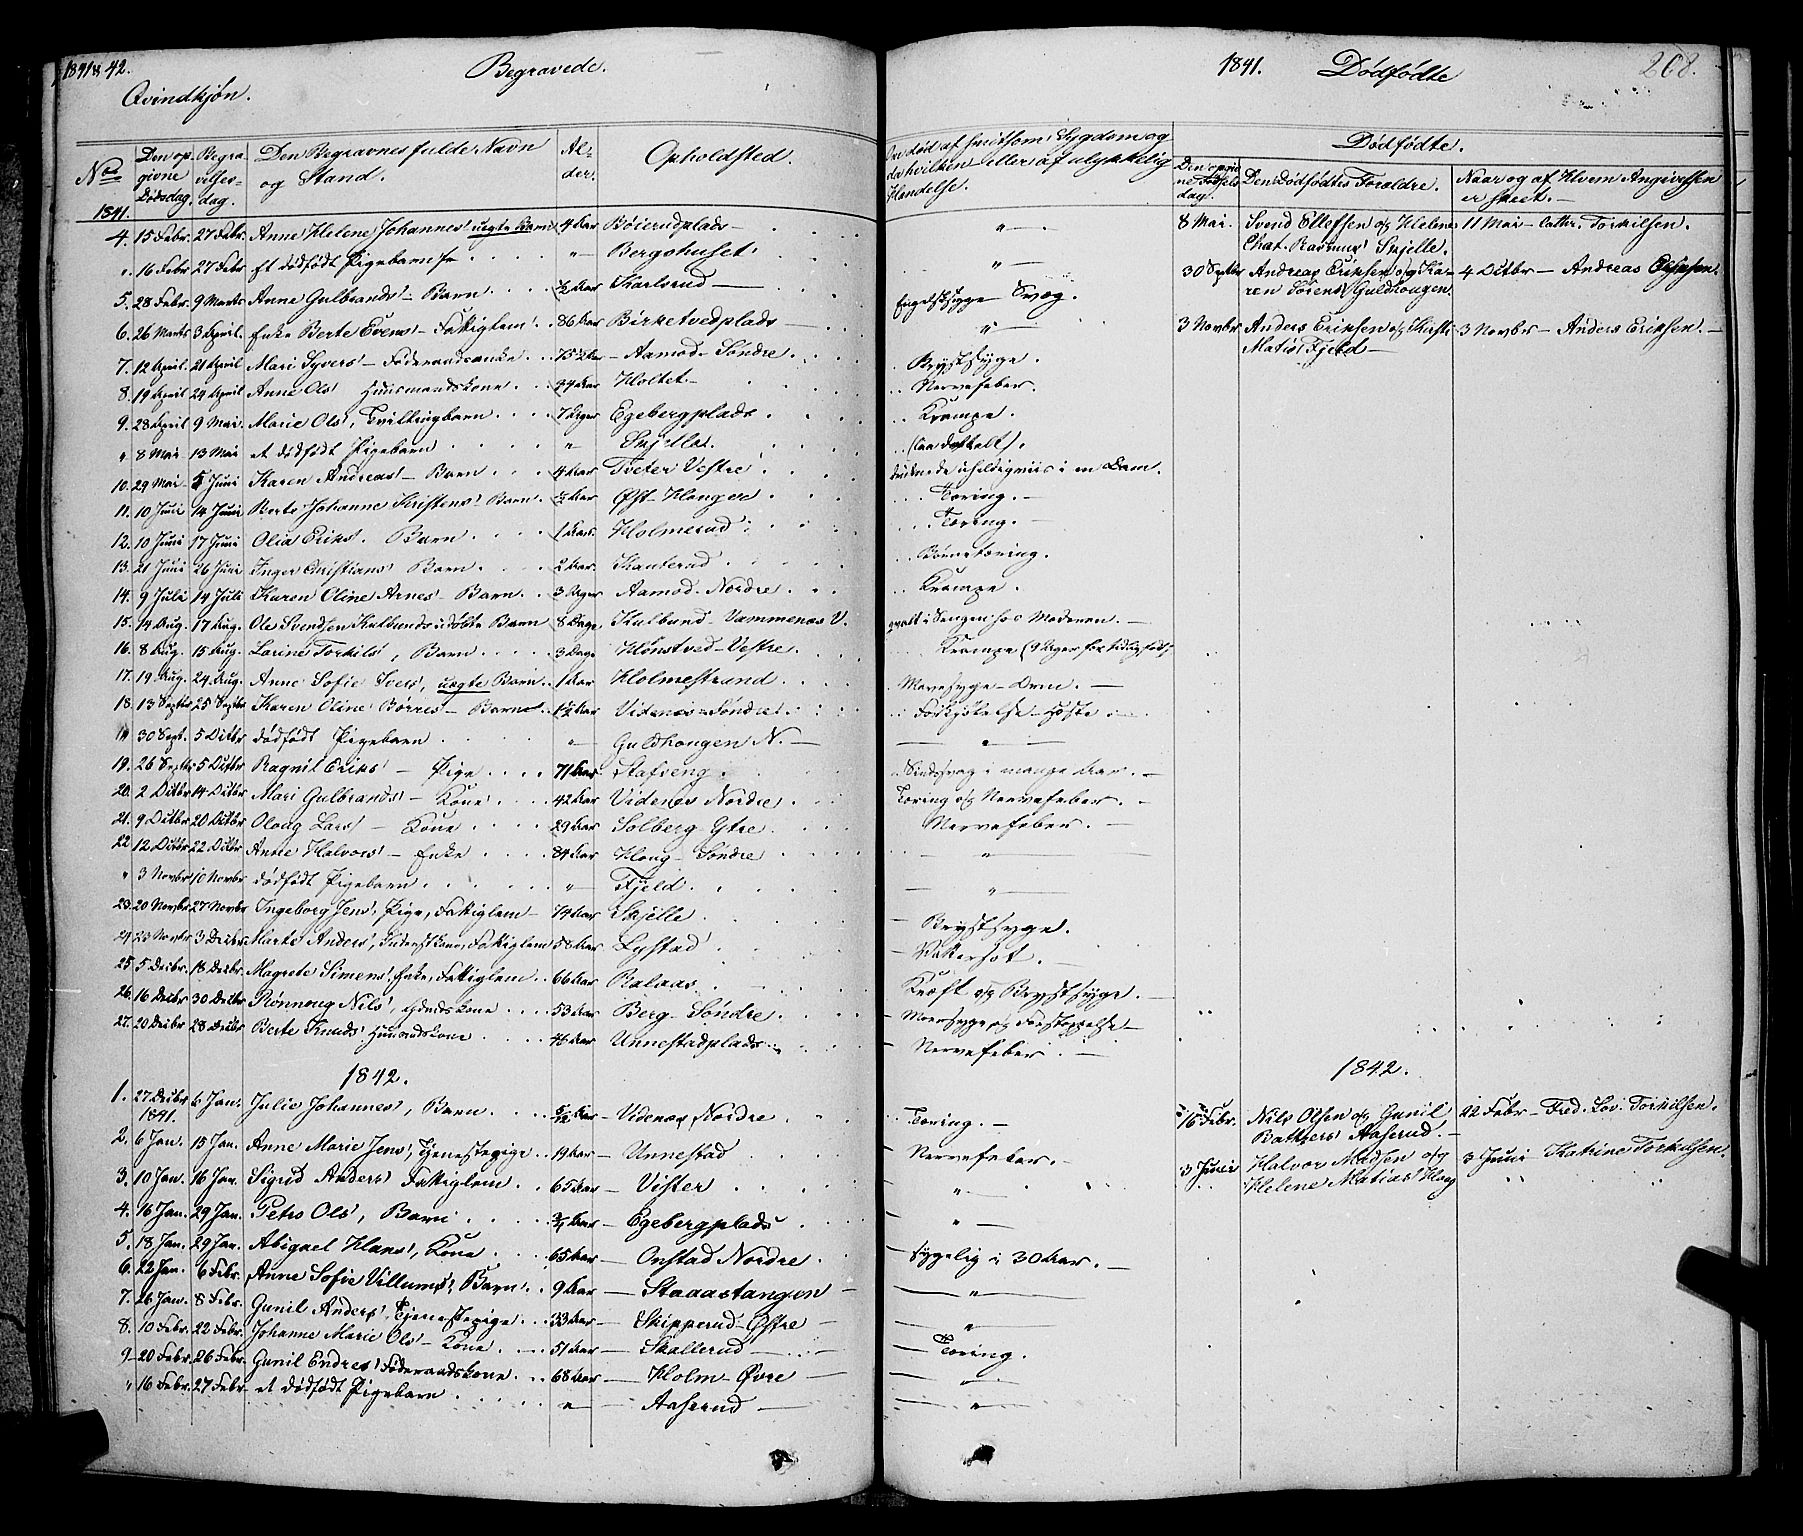 1841 & 42.
Begravede.
Qvindkjøn.
No
Den opgivne Dødsdag.
Begravelsesdag.
Den Begravnes fulde Navn og Stand.
Alder.
Opholdsted.
1841.
4. 15 Febr. 27 Febr. Anne Helene Johannes' uægte Barn 4 Aar Bøierudplads
" 16 Febr 27 Febr et dødfødt Pigebarn " Bergshuset
5. 28 Febr. 9 Marts Anne Gulbrands' Barn ½ Aar Karlsrud
6. 26 Marts 3 April. Enke Berte Evens' Fattiglem 86 Aar Birketvedplads
7. 12 April. 21 April Mari Syvers' Føderaadsenke 75½ Aar Aamod Søndre
8. 19 April 24 April Anne Ols' Huusmandskone 44 Aar Holtet
9. 28 April 9 Mai. Marie Ols', Tvillingbarn 7 Dager Egebergplads
" 8 Mai 13 Mai et dødfødt Pigebarn " Skjelle.
10. 29 Mai 5 Juni Karen Andreas' Barn 4 Aar Tveter Vestre
11. 10 Juni 14 Juni Berte Johanne Kristens' Barn Aar Øst-Hougen
12. 10 Juni 17 Juni Olia Eriks'. Barn 1 Aar. Holmerud
13. 21 Juni 26 Juni Inger Christians' Barn 2 Aar. Kanterud
14. 9 Juli 14 Juli Karen Oline Arnes' Barn 3 Dager Aamod Nordre
15. 14 Aug. 17 Aug. Ole Svendsen Kulbunds udøbte Barn 8 Dage Kulbund Vammenæs V.
16. 8 Aug. 15 Aug. Larine Torkils', Barn 3 Dage Hønstved-Vestre
17. 19 Aug. 24 Aug. Anne Sofie Ivers, uægte Barn 1 Aar Holmestrand
18. 13 Septbr 25 Septbr Karen Oline Børres' Barn 1½ Aar Videnæs Søndre
" 30 Sept. 5 Octbr dødfødt Pigebarn " Guldhougen N.
19. 26 Septbr 5 Octbr Ragnil Eriks' Pige 71 Aar Stafseng
20. 2 Octbr 14 Octbr Mari Gulbrands' Kone 42 Aar Videnes Nordre
21. 9 Octbr 20 Octbr Oloug Lars' Kone 29 Aar Solberg Ytre
22 12 Octbr 22 Octbr Anne Halvors' Enke 84 Aar Houg Søndre
" 3 Novbr 10 Novbr dødfødt Pigebarn " Fjeld
23. 20 Novbr 27 Novbr Ingeborg Jens', Pige, Fattiglem 74 Aar Skjelle
24 23 Novbr 3 Decbr. Marte Anders', Fattiglem 58 Aar Lystad
25. 5 Decbr. 18 Decbr. Magrete Simens', Enke, Fattiglem 66 Aar Ralaas
26. 16 Decbr 30 Decbr Rønnoug Nils', Gaardskone 53 Aar Berg Søndre
27. 20 Decbr 28 Decbr Berte Knuds' Huusmandskone 46 Aar Unnestadplads
1842.
1. 27 Decbr 1841. 6 Jan. Julie Johannes', Barn Aar Udenæs Nordre
2. 6 Jan. 15 Jan. Anne Marie Jens', Tjenestepige 19 Aar Unnestad
3. 10 Jan. 16 Jan. Sigrud Anders' Fattiglem 65 Aar Vister
4. 16 Jan. 29 Jan. Petro Ols', Barn Aar Egebergplads
5. 18 Jan. 29 Jan. Abigael Hans', Kone 65 Aar Onstad Nordre
6. 22 Jan. 6 Febr. Anne Sofie Villums', Barn 9 Aar Staaastangen
7. 26 Jan. 8 Febr. Gunil Anders', Tjenestepige 33 Aar Skipperud-Østre
8. 10 Febr. 22 Febr. Johanne Marie Ols' Kone 51 Aar Skallerud
9 20 Febr. 26 Febr. Gunil Endres' Føderaadskone 68 Aar Holm-Øvre
" 16 Febr. 27 Febr et dødfødt Pigebarn " Aaserud
1841. Dødfødte 208.
Om død af smitsom Sygdom og da hvilken eller af ulykkelig Hændelse.
Dødfødte.
Den opgivne Fødselsdag.
Den Dødfødtes Forældre.
Naar og af Hvem Angivelsen er skeet.
"
"
Engelsksyge Svæg.
"
Brystsyge.
Nervefeber.
Krampe.
druknede uheldigviis i en Dam.
Tæring.
Tæring.
Børnetæring.
Krampe.
qvalt i Sengen hos Moderen.
Krampe (9 Uger for tidlig født)
Mavesyge - Orm.
Forkjølelse - Hoste
"
Sindssvag i mange Aar.
Tæring og Nervefeber.
Nervefeber.
"
"
Brystsyge.
Vattersot.
Kræft og Brystsyge.
Mavesyge og Forstoppelse
Nervefeber
Tæring.
Nervefeber.
"
"
Sygelig i 30 Aar.
"
"
Tæring.
"
"
8 Mai. Svend Ellefsen og Helene Chat. Rasmus' Skjelle. 11 Mai Cathr. Torkilsen.
30 Septbr Andreas Eriksen og Karen Sørens' Guldhougen. 4 Octbr Andreas Eriksen.
3 Novbr Anders Eriksen og Kirsti Matis' Fjeld 3 Novbr Anders Eriksen.
1842.
16 Febr. Nils Olsen og Gunil Aaserud. 22 Febr Fred. Lov. Torkilsen.
3 Juni Halvor Madsen og Helene Matias' Houg 3 Juni Katrine Torkilsen.